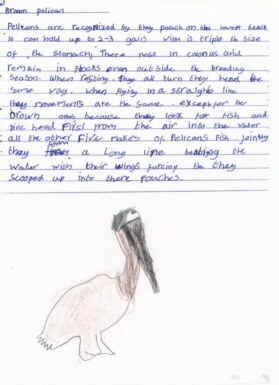 Brown pelicans
Pelicans are recognized by they pouch on the lower beack
it can hold up to 2-3 gals with is triple the size
of the stomach There nest in colonies and
remain in flocks even outside the breeding
season. When resting they all turn they head the
same way. When flying in a straight line
they movements are the same. except for the
brown one because they look for fish and
dive head first from the air into the water
all the other five makes of Pelicans fish jointly
they form a long line beating the
water with their wings the they
scooped up into there pouches.